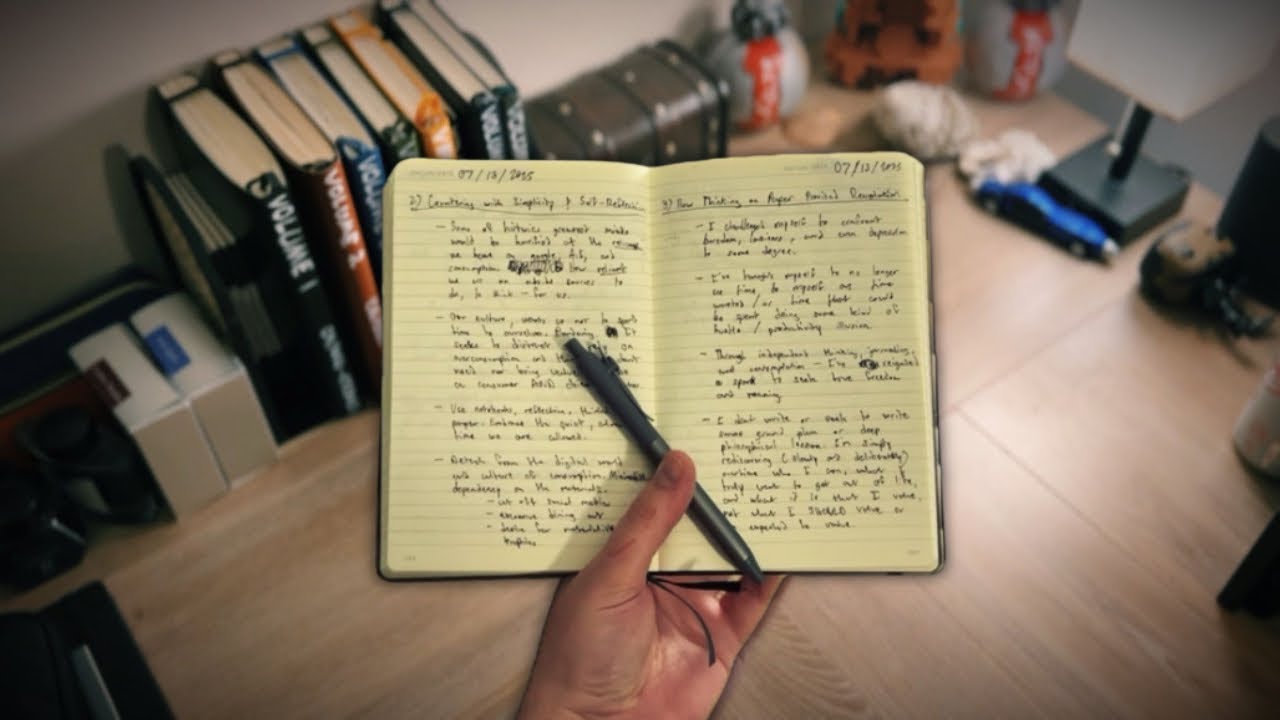 07/13/2025
2) Countering with Simplicity & Self-Reflection
- Some of histories greatest minds
would be horrified at the
we have on google, A.I., and
consumption. how reliant
we are on outside sources to
do, to think - for us.
- Our culture, wants us not to spend
time to ourselves. It
seeks to distract rely on
overconsumption and dont
need nor being
on consumer
- Use notebooks, reflection,
paper. Embrace the quiet,
time we are allowed.
- Detach from the digital world
and culture of consumption. Minimalize
dependency on the materials.
- cut off social media
- excessive dining out
- desire for materialistic
trophies.
07/13/2025
3) How Thinking on Paper Provided Recuperation
- I challenged myself to confront
boredom, laziness, and even depression
to some degree.
- I've taught myself to no longer
see time to myself as time
wasted / or time that could
be spent doing some kind of
hustle / productivity illusion.
- Through independent thinking, journaling,
and contemplation - I've reignited
a spark to seek true freedom
and meaning.
- I don't write or seek to write
some grand plan or deep
philosophical lesson. I'm simply
rediscovering (slowly and deliberately)
who I am, what I
truly want to get out of life,
and what it is that I value,
not what I SHOULD value or
am expected to value.
VOLUME 1
VOLUME 2
VOLUME
VOLUME
VOLUME